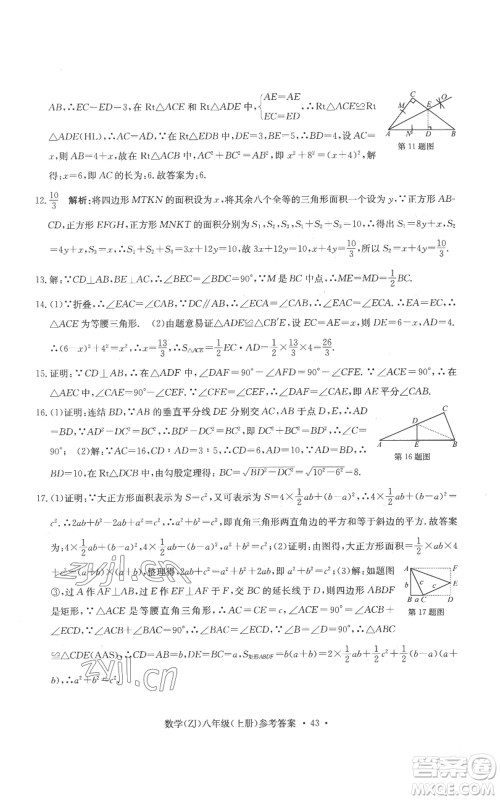 AB,∴EC=ED=3,在 Rt△ACE 和 Rt△ADE 中,{AE=AE EC=ED,∴Rt△ACE≌Rt△
ADE(HL),∴AC=AD,∵在 Rt△EDB 中,DE=3,BE=5,∴BD=4,设 AC=x,
则 AB=4+x,故在 Rt△ACB 中,AC²+BC²=AB²,即 x²+8²=(x+4)²,
解得:x=6,即 AC 的长为:6.故答案为:6.
第 11 题图
12. 10/3 解析:将四边形 MTKN 的面积设为 x,将其余八个全等的三角形面积一个设为 y,∵正方形 AB-
CD,正方形 EFGH,正方形 MNKT 的面积分别为 S₁,S₂,S₃,S₁+S₂+S₃=10,∴得出 S₁=8y+x,S₂
=4y+x,S₃=x,∴S₁+S₂+S₃=3x+12y=10,故 3x+12y=10,x+4y=10/3,所以 S₂=x+4y=10/3.
13. 解:∵CD⊥AB,H⊥AC,∴∠BEC=∠BDC=90°.∵M 是 BC 中点,∴DM=EM=1/2BC.
14. (1)∵折叠,∴∠EAC=∠CAV,∵DC∥AB,∴∠ECA=∠CAV,∴∠EAC=∠ECA,∴EA=EC,∴
△ACE 为等腰三角形. (2)由题意易证△ADE≌△CBE,∴AE=CE.设 AE=x,则 DE=6-x,AD=4.
∴(6-x)²+4²=x²,x=13/3,∴AE=CE=13/3.∴S△ACE=1/2EC·AD=1/2×13/3×4=26/3.
15. 证明:∵CD⊥AB,∴∠DAF=90°-∠AFD=90°-∠CFE.∵∠ACB=90°,∴∠EAC=90°-∠AEC.
∵CF=CE,∴∠CEF=∠CFE.∴90°-∠CFE=90°-∠CEF,∴∠DAF=∠EAC,即 AE 平分∠CAB.
16. (1)证明:连结 BD,∵AB 的垂直平分线 DE 分别交 AC、AB 于点 D、E,∴AD=
BD,∴∠A=∠ABD=30°,∵∠C=90°,∴∠ABC=90°-∠A=90°-30°=60°,∴∠DBC
=∠ABC-∠ABD=60°-30°=30°,在 Rt△BDC 中,∵∠DBC=30°,∴BD=2CD,∴AD
=2DC; (2)解:∵AC=16,CD∶AD=3∶5,∴CD=6,AD=10,∵AD=BD,∴BD
=10.在 Rt△DCB 中,由勾股定理得:BC=√(BD²-DC²)=√(10²-6²)=8.
第 16 题图
17. (1)证明:∵大正方形面积表示为 S=c²,又可表示为 S=4×1/2ab+(b-a)²,∴4×1/2ab+(b-a)²
=c².∴2ab+b²-2ab+a²=c²,∴a²+b²=c²,即直角三角形两直角边的平方和等于斜边的平方.故答案
为:4×1/2ab+(b-a)²;4×1/2ab+(b-a)²=c²; (2)证明:由图得,大正方形面积=1/2×ab
×4+(b-a)²=c×c,整理得,2ab+b²-2ab+a²=c²,即 a²+b²=c²; (3)证明:如答题图
③,过 A 作 AF⊥AB,过 E 作 EF⊥AF 于 F,交 BC 的延长线于 D,则四边形 ABDF
是矩形,∵△ACE 是等腰直角三角形,∴AC=CE=c,∠ACE=90°=∠ACB+
∠ECD,∵∠ACB+∠BAC=90°,∴∠BAC=∠ECD,∵∠B=∠D=90°,∴△ABC
≌△CDE(AAS),∴CD=AB=b,DE=BC=a,S矩形ABDF=b(a+b)=1/2c²+2×1/2ab+1/2(b-
a)(a+b),∴a²+b²=c².
第 17 题图
数学(ZJ)八年级(上册)参考答案 · 43 ·